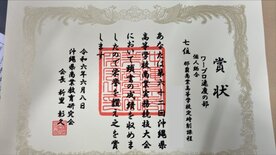 賞状
ワープロ速度の部
個人総合
七位
那覇商業高等学校定時制課程
あなたは第六十二回沖縄県
高等学校商業実務競技大会
において頭書の成績を収めま
したので栄誉を讃えこれを賞
します
令和六年六月八日
沖縄県商業教育研究会
会長 新里 彰